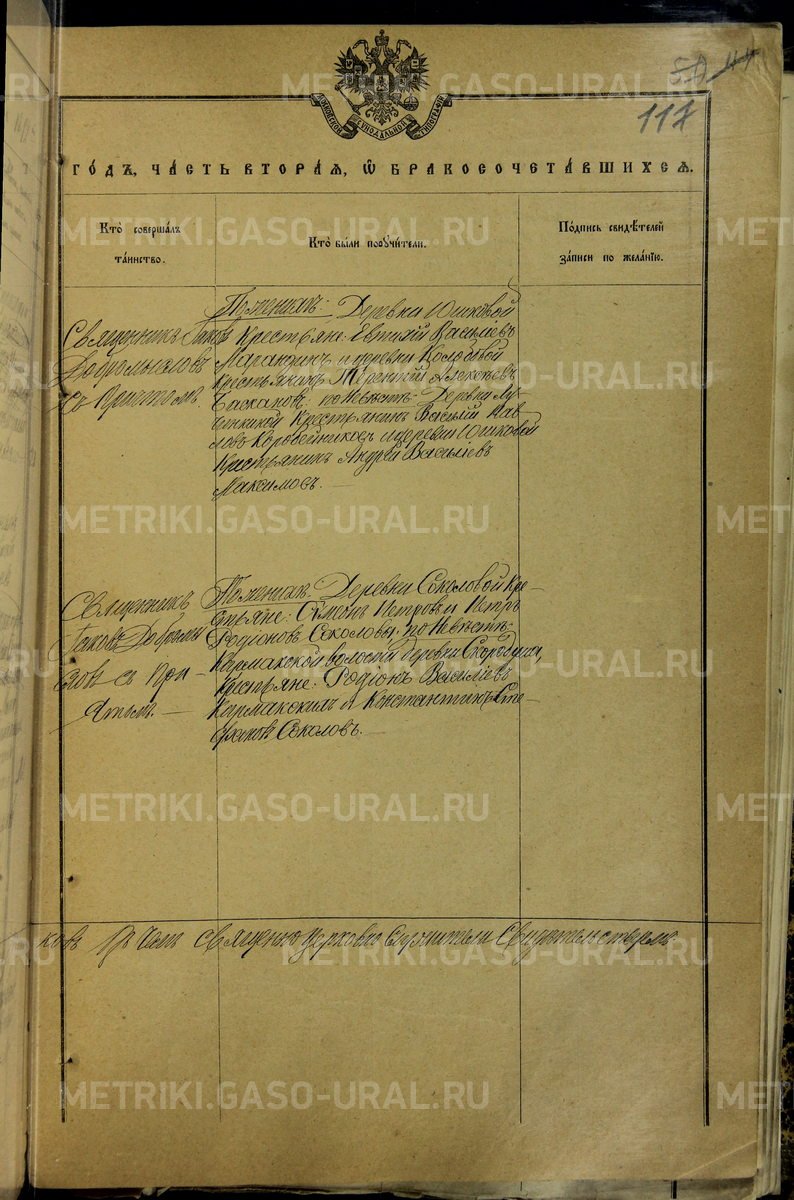 50 44
117
МОСКОВСКОЙ СѴНОДАЛЬНОЙ ТИПОГРАФІИ
ГО́ДЪ, ЧА́СТЬ ВТОРА́Я, Ѡ҆ БРАКОСОЧЕТА́ВШИХСѦ.
Кто̀ соверша́лъ
та́инство.
Кто̀ бы́ли поꙋчи́тели.
По́дпись свидѣ́телей
за́писи по жела́нїю.
Священникъ Іаковъ
Добромысловъ
съ причтомъ.
По женихѣ: Деревни Юшковой
Крестьяне: Евтихій Васильевъ
и деревни Колобовой
крестьянинъ Терентій Алексѣевъ
Басхановъ. по Невѣстѣ: Деревни
Крестьянинъ Василій Пав-
ловъ Коровейниковъ и деревни Юшковой
Крестьянинъ Андрей Василіевъ
Максимовъ.
Священникъ
Іаковъ Добромы
словъ съ при-
чтомъ.
По женихѣ: Деревни Соколовой кре-
стьяне: Симонъ Петровъ и Петръ
Родіоновъ Соколовы. по Невѣстѣ:
Кармакской волости деревни
Крестьяне: Родіонъ Василіевъ
Кармакскихъ и Константинъ Сте-
фановъ Соколовъ.
ковъ въ чемъ священно церковно служители Свидѣтельствуемъ.
METRIKI.GASO-URAL.RU